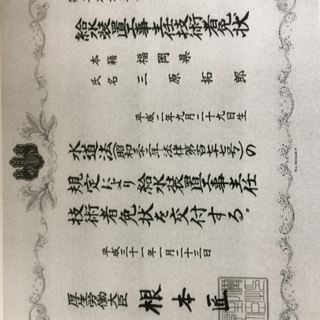 給水装置工事主任技術者免状
本籍 福岡県
氏名 三原拓郎
平成一年九月二十九日生
水道法(昭和三十二年法律第百七十七号)の
規定により給水装置工事主任
技術者免状を交付する。
平成三十一年一月二十三日
厚生労働大臣 根本匠